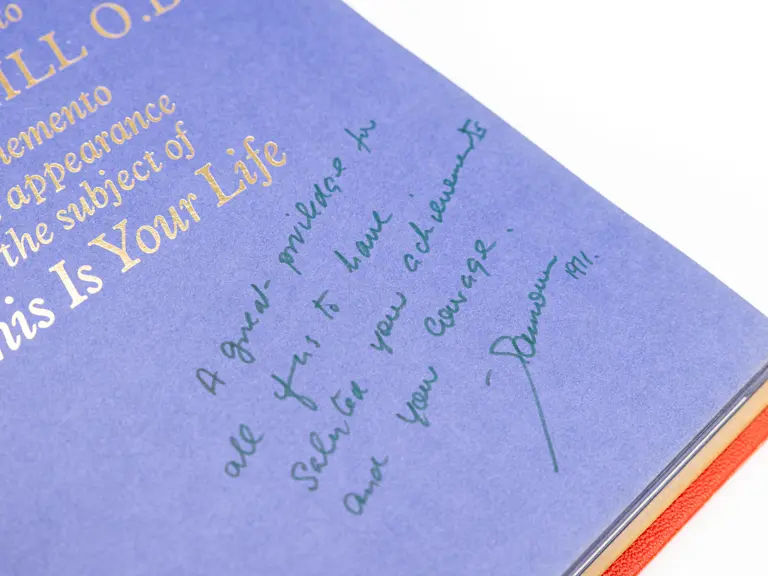 to
ILL O.B
memento
appearance
the subject of
his Is Your Life
A great priviledge for
all of us to have
Saluted your achievements
and your courage.
- Eamonn 1971.